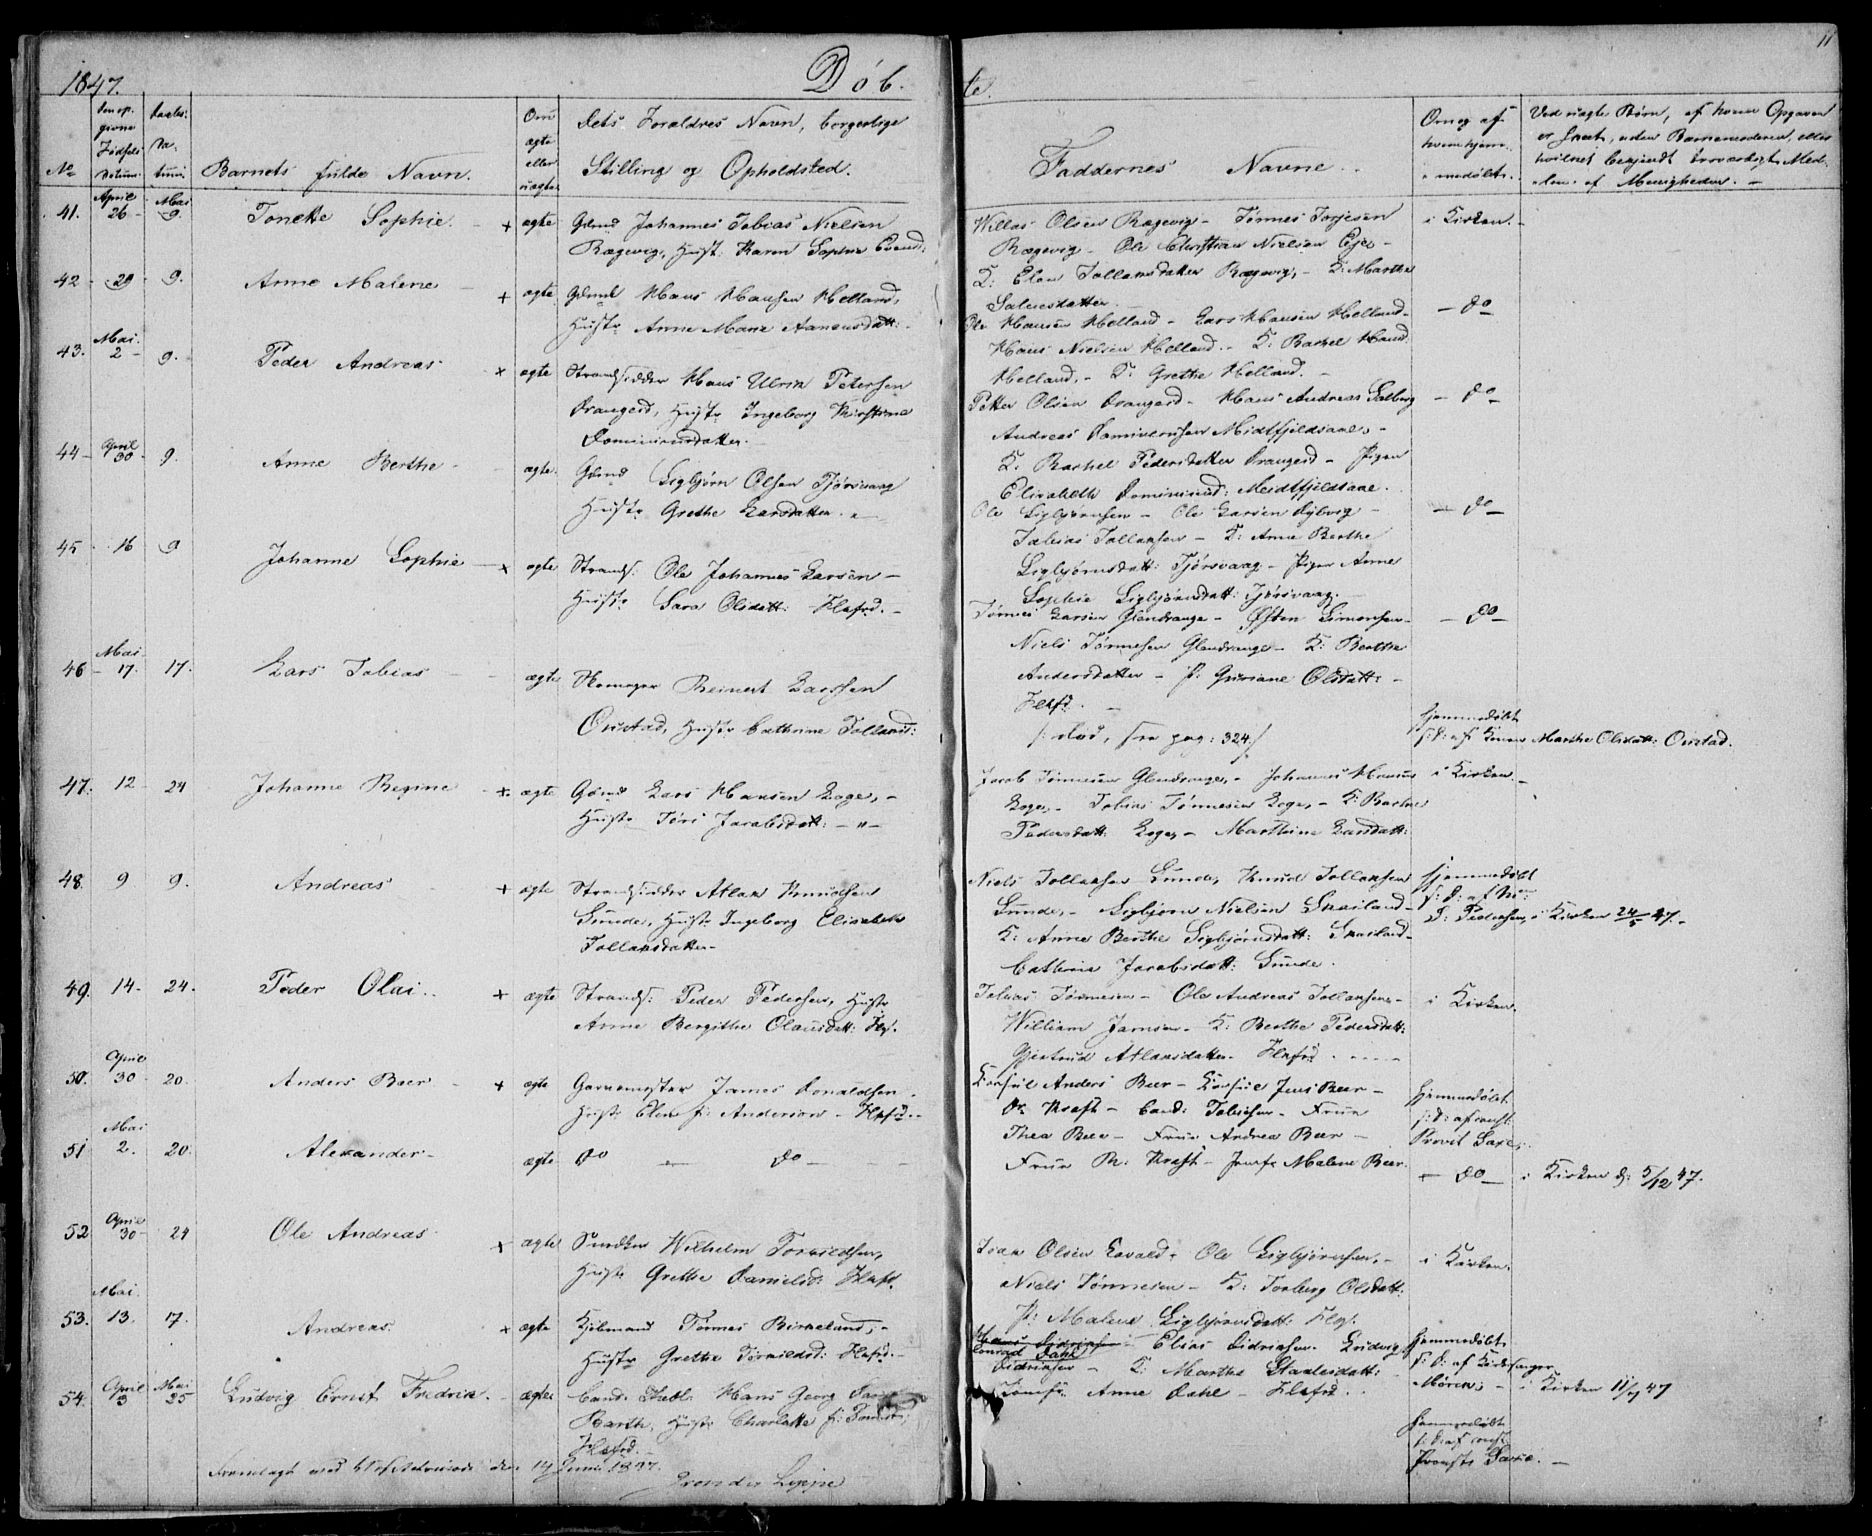 1847.
Døb
te.
11
No
Den op-
givne
Fødsels
Datum
Daabs
Da-
tum
Barnets fulde Navn.
Om
ægte
eller
uægte
Dets Foraldres Navn, borgerlige
Stilling og Opholdsted.
Faddernes Navne.
Om og af
hvem hjem-
medøbt.
Ved uægte Børn, af hvem Opgaven
er skeet, uden Barnemoderen, eller
41. April 26 Mai 9. Tonette Sophie. + ægte
Gdmd Johannes Tobias Nielsen
Rægevig, Hust: Karen Sophie
Willas Olsen Rægevig - Tønnes Torjesen
Rægevig - Ole Christian Nielsen
K: Elen Tollansdatter Rægevig, - K: Marthe
Salvesdatter
i Kirken.
42 - 29 - 9. Anne Malene + ægte
Gdmd Hans Hansen Helland,
Hustr Anne Marie
Ole Hansen Helland - Lars Hansen Helland -
Hans Nielsen Helland. - K: Rachel Hansd
Helland, - K: Grethe Helland. -
- do -
43. Mai 2 - 9. Peder Andreas + ægte
Strandsidder Hans Ulrik Petersen
Drangeid, Hustr Ingeborg Kirstine
Dominicusdatter. -
Petter Olsen Drangeid - Hans Andreas Salberg
Andreas Dominicusen Midtfjeldsaae, -
K: Rachel Pedersdatter Drangeid - Pigen
Elisabeth Dominicusd: Meidtfjeldsaae.
- do -
44 - April 30 - 9. Anne Berthe - ægte
Gdmd Sigbjørn Olsen Tjørsvaag
Hustr Grethe Larsdatter. "
Ole Sigbjørnsen - Ole Larsen Dyborg -
Tobias Tollaksen - K: Anne Berthe
Sigbjørnsdatt: Tjørsvaag - Pigen Anne
Sophie Sigbjørnsdatt: Tjørsvaag.
- do -
45 - 16 9 Johanne Sophie + ægte
Strands: Ole Johannes Larsen -
Hustr Sara Olsdatt: Flefd. -
Tønnes Larsen Glendrange - Østen Simonsen -
Niels Tønnesen Glendrange - K: Berthe
Andersdatter - P: Guriane Olsdatt: -
Flefd. -
- do -
46 - Mai 17. 17. Lars Tobias ægte
Skomager Reinert Larssen
Oustad, Hustr Cathrine Tollaksd:
/: død, see pag: 324 :/
hjemmedøbt
/: D: af Konen Marthe Olsdatt: Oustad.
47. 12 - 24 Johanne Regine + ægte
Gdmd Lars Hansen Loge, -
Hustr Tøri Jacobsdatt: - " -
Jacob Tønnesen Glendrange, - Johannes Hansen
Loge, - Tobias Tønnesen Loge, - K: Rachel
Pedersdatt: Loge, - Marthine Larsdatt:
i Kirken. -
48. 9 9. Andreas + ægte
Strandsidder Atlak Knudsen
Sunde, Hustr Ingeborg Elisabeth
Tollaksdatter -
Niels Tollaksen Sunde, Knud Tollaksen
Sunde, - Sigbjørn Nielsen
K: Anne Berthe Sigbjørnsdatt:
Cathrine Jacobsdatt: Sunde.
hjemmedøbt
Pedersen, i Kirken 24/5 47. -
49. 14 - 24. Peder Olai. + ægte
Strands: Peder Pedersen, Hustr
Anne Bergithe Olausdatt: Flef.
Tobias Tønnesen - Ole Andreas Tollaksen -
William Jamsen - K: Berthe Pedersdatt:
Gjertrud Atlaksdatter Flefd.
i Kirken.
50. April 30 - 20. Anders Beer - + ægte
Garvemester James Donaldsen,
Hustr Elen f: Anderson - Flefd. -
Consul Anders Beer - Consul Jens Beer -
Dr Kraft - Cand: Tobiesen - Fruer
Thea Beer - Frue Andrea Beer -
Frue Th: Kraft - Jomfr Malene Beer.
hjemmedøbt
/: D: af const
Provst Saxe:
51 Mai 2. 20. Alexander - ægte
do - do -
- do - i Kirken d: 5/12 47.
52 April 30 - 24 Ole Andreas + ægte
Snedker Wilhelm Torkildsen,
Hustr Grethe Danielsd: Flefd.
Isak Olsen - Ole Sigbjørnsen, -
Niels Tønnesen - K: Torborg Olsdatt:
P: Malene Sigbjørnsdatt: Flef.
i Kirken.
53. Mai. 13. 17. Andreas. + ægte
Kjøbmand Tønnes Birkeland, -
Hustr Grethe Torkildsd: Flefd. -
Hans Didriksen - Elias Didriksen - Ludvig
Conrad Dahl
Didriksen - K: Marthe Staalesdatt:
Jomfr Anne Dahl - Flefd.
hjemmedøbt
/: D: af Kirkesanger
Møren, - i Kirken 11/7 47
54. April 3 Mai 25 Ludvig Ernst Fredrik. - ægte
Cand: Theol. Hans Georg
Barth, Hustr Charlotte f:
Flefd. -
hjemmedøbt
/: D: af const
Provst Saxe. -
Fremlagt ved den 14 Juni 1847.